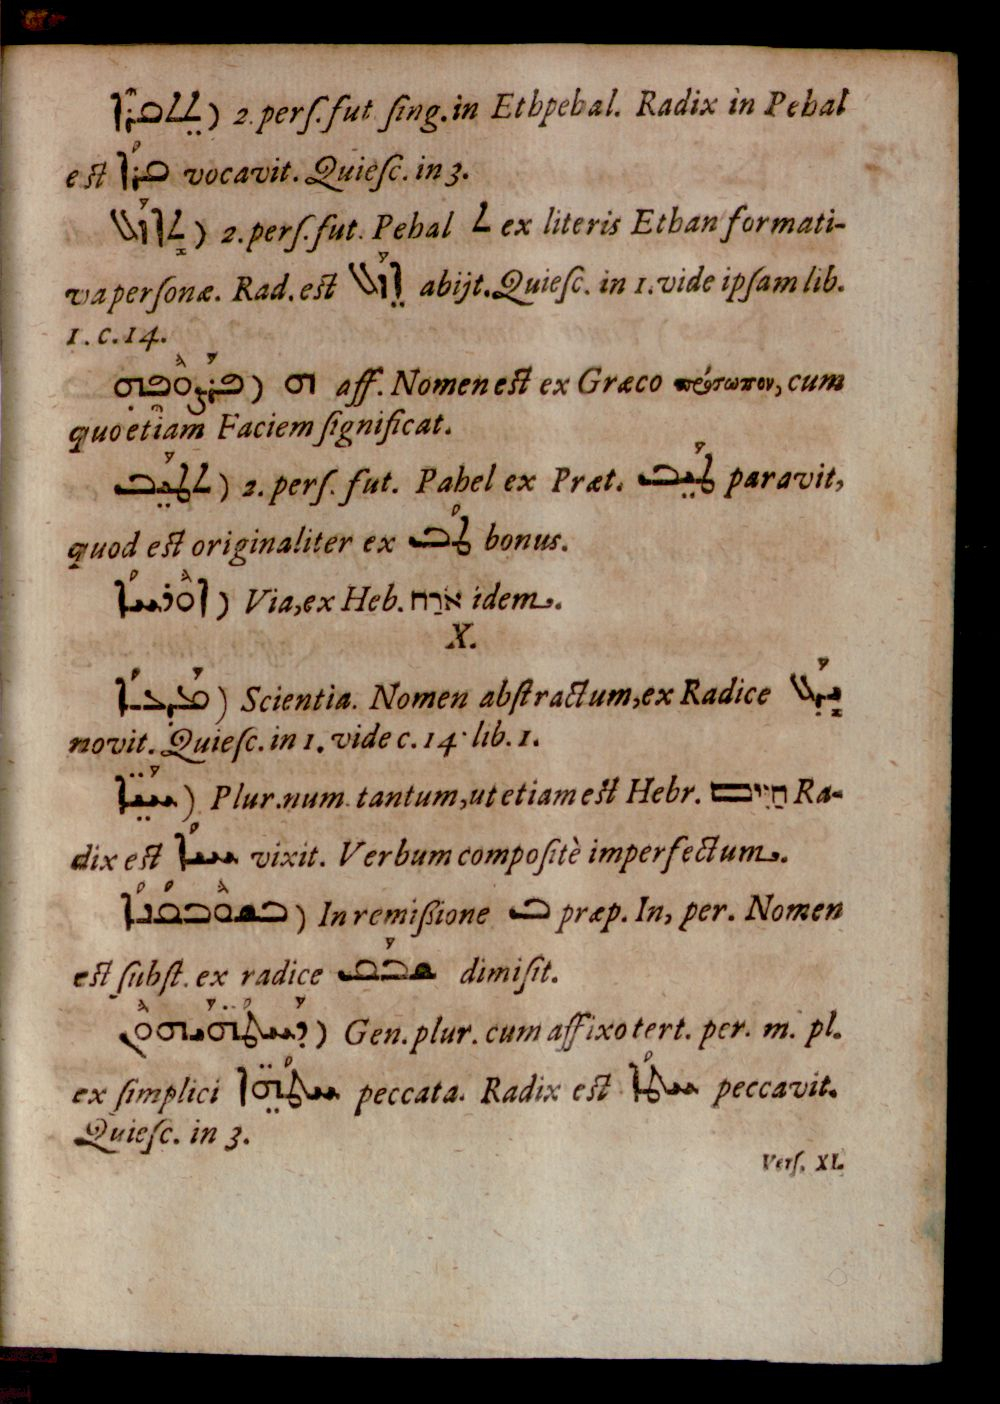 ܬܬܩܪܐ) 2. perſ. fut ſing. in Ethpehal. Radix in Pehal
est ܩܪܐ vocavit. Quieſc. in 3.
ܬܐܙܠ) 2. perſ. fut. Pehal ܬ ex literis Ethan formati-
va personæ. Rad. est ܐܙܠ abijt. Quieſc. in 1. vide ipſam lib.
1. c. 14.
ܦܪܨܘܦܗ) ܗ aff. Nomen est ex Græco πρόσωπον, cum
quo etiam Faciem ſignificat.
ܬܛܝܒ) 2. perſ. fut. Pahel ex Præt. ܛܝܒ paravit,
quod est originaliter ex ܛܒ bonus.
ܐܘܪܚܐ) Via, ex Heb. אֹרַח idem.
X.
ܡܕܥܐ) Scientia. Nomen abstractum, ex Radice ܝܕܥ
novit. Quieſc. in 1. vide c. 14. lib. 1.
ܚܝܐ) Plur. num. tantum, ut etiam est Hebr. חַיִּים Ra-
dix est ܚܝܐ vixit. Verbum compoſitè imperfectum.
ܒܫܘܒܩܢܐ) In remißione ܒ præp. In, per. Nomen
est ſubst. ex radice ܫܒܩ dimiſit.
ܕܚܛܗܝܗܘܢ) Gen. plur. cum affixo tert. per. m. pl.
ex ſimplici ܚܛܗܐ peccata. Radix est ܚܛܐ peccavit.
Quieſc. in 3.
Verſ. XI.